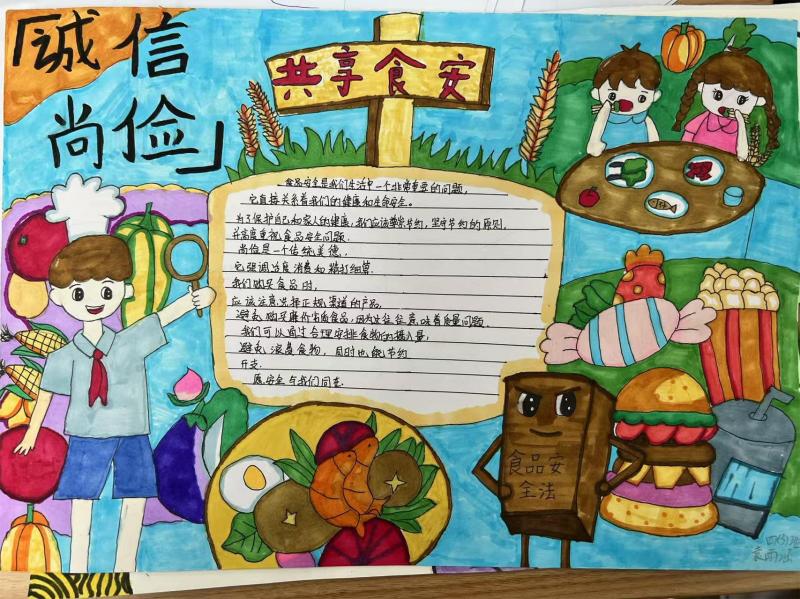 「誠信
尚俭」
共享食安
食品安全是我们生活中一个非常重要的问题，
它直接关系着我们的健康和生命安全。
为了保护自己和家人的健康，我们应该崇尚节约，坚守节约的原则，
并高度重视食品安全问题．
尚俭是一个传统美德，
它强调适度消费和精打细算．
我们购买食品时，
应该注意选择正规渠道的产品，
避免购买廉价劣质食品，因为这往往意味着质量问题．
我们可以通过合理安排食物的摄入量，
避免浪费食物，同时也能节约
开支．
愿安全与我们同在．
食品安
全法